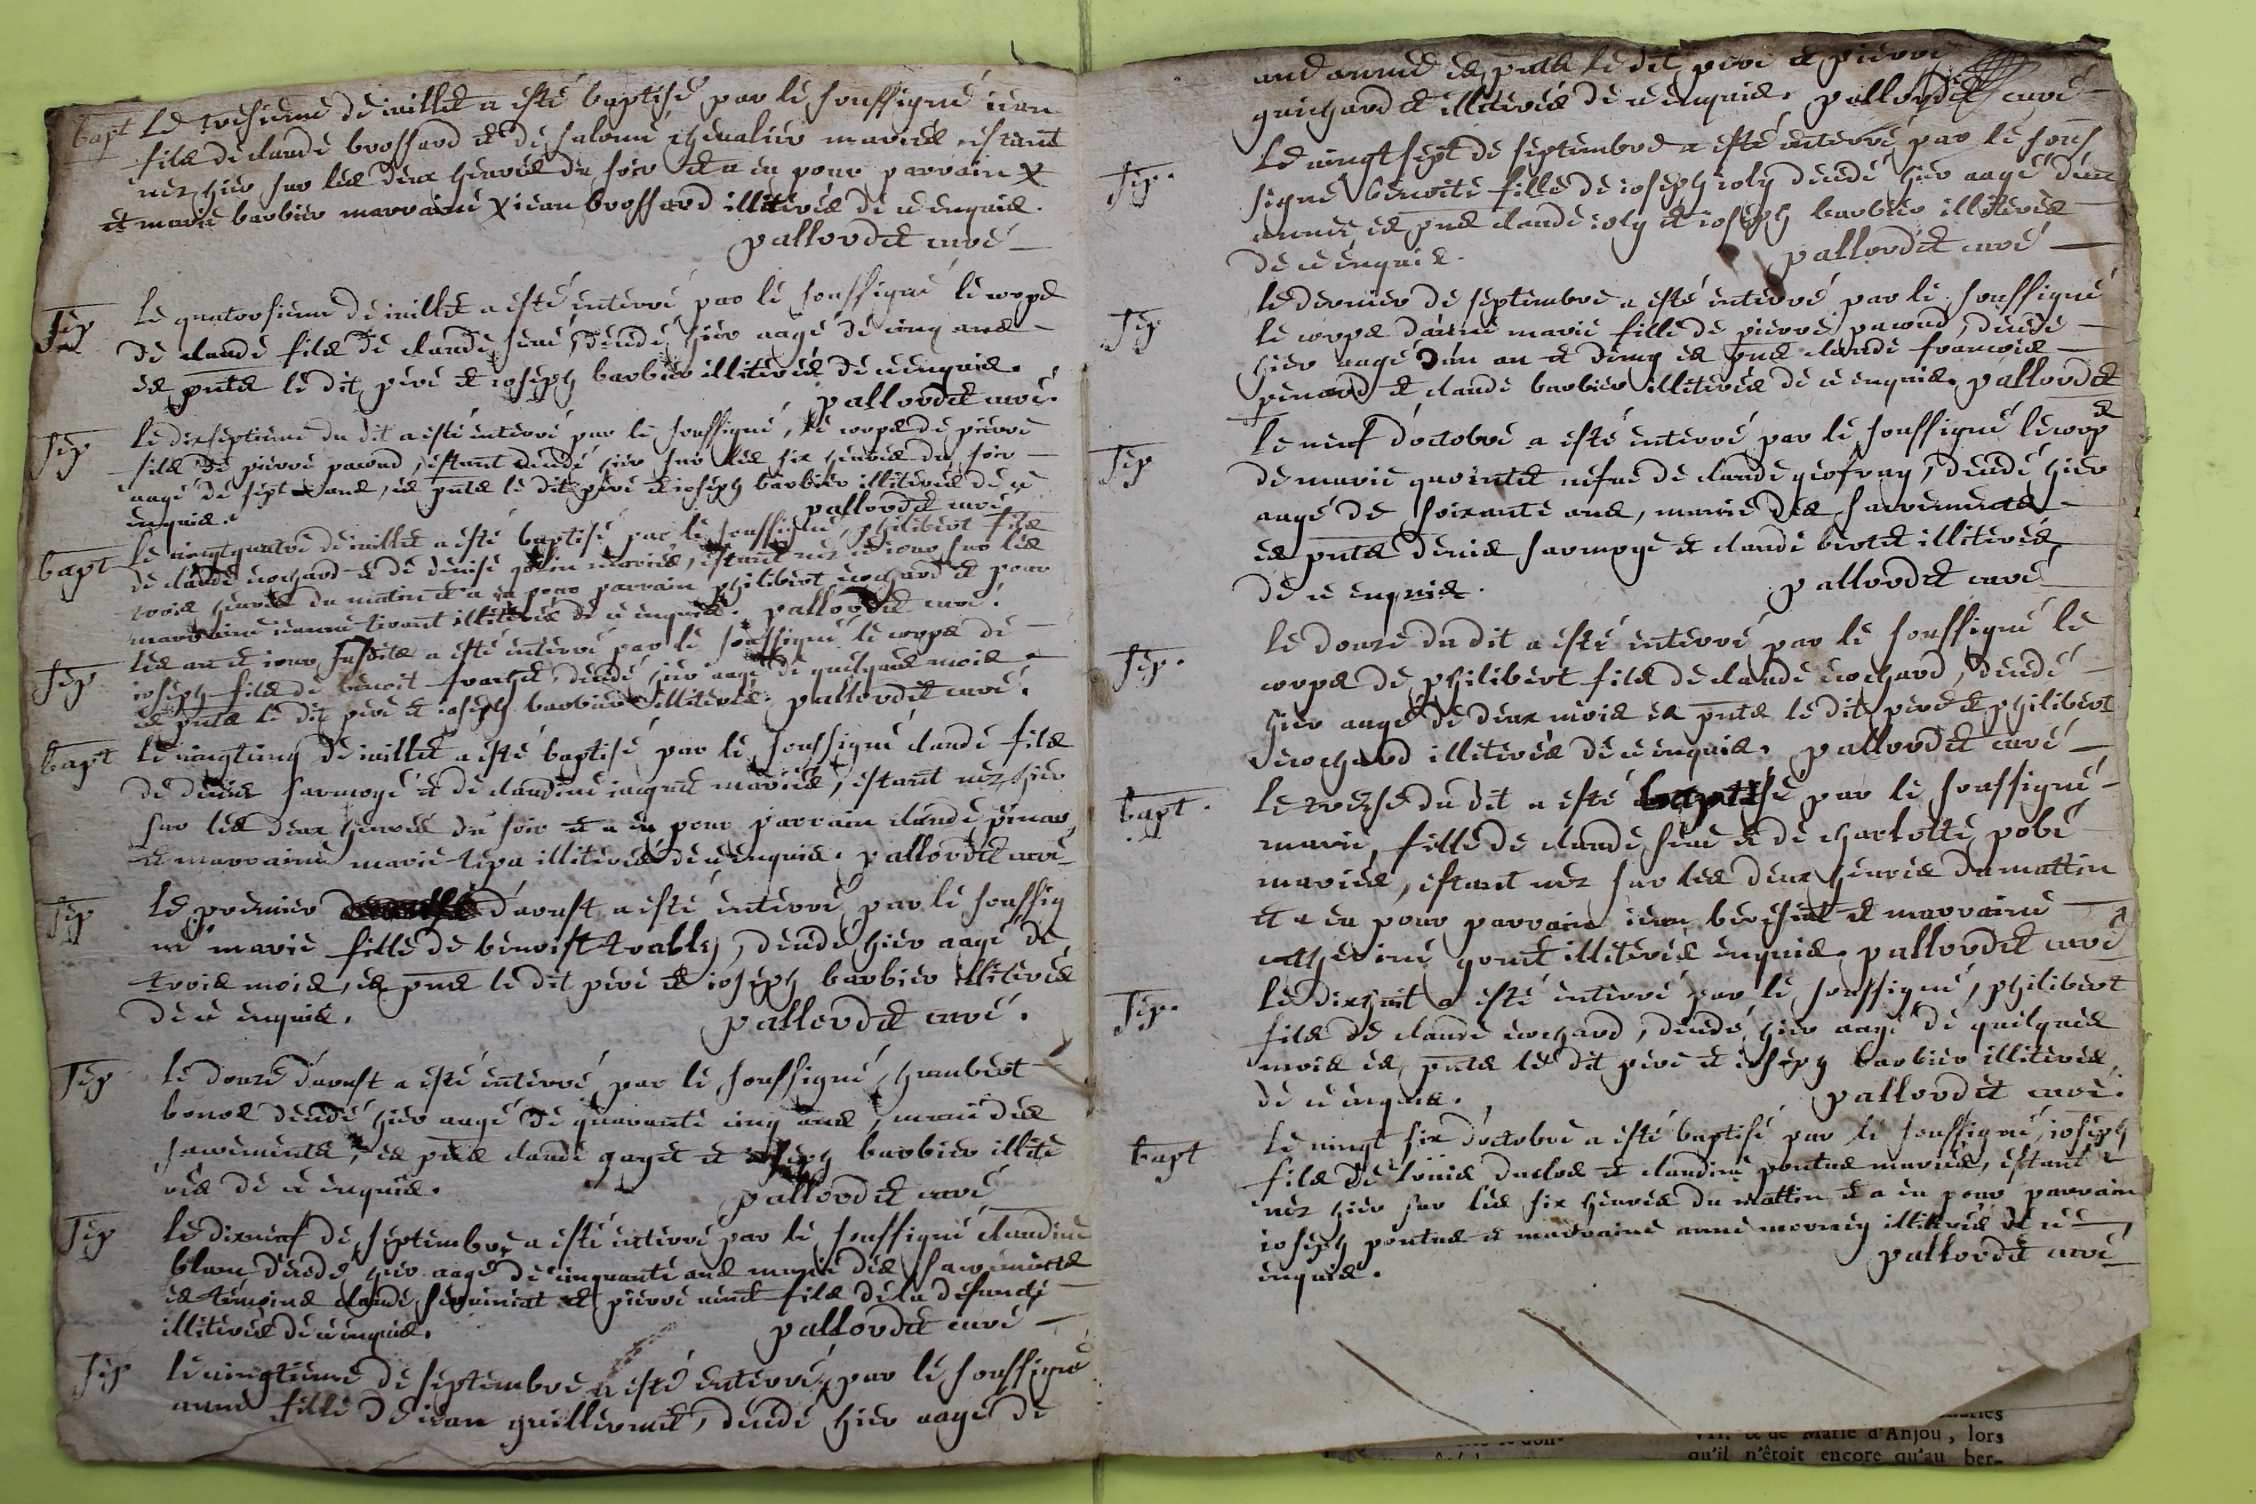 bapt Le tresieme de iuillet a esté baptisé par le soussigné iean
fils de claude brossard et de salomé chevalier mariés estant
nez hier sur les deux heures du soir et a eu pour parrain X
et marie barbier marraine X iean brossard illiterés de ce enquis.
pallordet curé
sep le quatorsieme de iuillet a esté enterré par le soussigné le corps
de claude fils de claude sené, décédé hier aagé de cinq ans
es pnts le dit pere et ioseph barbier illiterés de ce enquis.
pallordet curé.
sep le dixseptieme du dit a esté enterré par le soussigné, le corps de pierre
fils de pierre pacoud, estant décédé hier sur les six heures du soir
aagé de sept ans, es pnts le dit pere et ioseph barbier illiterés de ce
enquis. pallordet curé
bapt le vingtquatre de iuillet a esté baptisé par le soussigné, philibert fils
de claude cochard et de denise mariés, estant nez ce iour sur les
trois heures du matin et a eu pour parrain philibert cochard et pour
marraine ieanne tirant illiterés de ce enquis. pallordet curé.
sep les an et iour susdits a esté enterré par le soussigné le corps de
ioseph fils de benoit frachet, décédé hier aagé de quelques mois
es pnts le dit pere et ioseph barbier illiterés. pallordet curé.
bapt le vingtcinq de iuillet a esté baptisé par le soussigné claude fils
de denis sarmoge et de claudine iaquet mariés, estant nez hier
sur les deux heures du soir et a eu pour parrain claude
et marraine marie illiterés de ce enquis. pallordet curé
sep le premier d'aoust a esté enterré par le soussig
né marie fille de benoist trably, décédé hier aagé de
trois mois, es pns le dit pere et ioseph barbier illiterés
de ce enquis. pallordet curé.
sep le douze d'aoust a esté enterré par le soussigné, humbert
décédé hier aagé de quarante cinq ans, muni des
sacrements, es pns claude gayet et ioseph barbier illite
rés de ce enquis. pallordet curé
sep le dixneuf de septembre a esté enterré par le soussigné claudine
blanc décédé hier aagé de cinquante ans munie des sacrements
es témoins claude et pierre fils de la defuncte
illiterés de ce enquis. pallordet curé
sep le vingtieme de septembre a esté enterré par le soussigné
anne fille de iean guillermet, décédé hier aagé de
es pnts le dit pere et pierre
guichard et illiterés de ce enquis. pallordet curé
sep. le vingt sept de septembre a esté enterré par le sous
signé benoite fille de ioseph ioly décédé hier aagé d'une
année es pns claude ioly et ioseph barbier illiterés
de ce enquis. pallordet curé
sep le dernier de septembre a esté enterré par le soussigné
le corps d'anne marie fille de pierre pacoud, décédé
hier aagé d'un an et demy es pns claude francois
et claude barbier illiterés de ce enquis. pallordet
sep le neuf d'octobre a esté enterré par le soussigné le corps
de marie de claude geofray, décédé hier
aagé de soixante ans, munie des sacrements
es pnts denis sarmoge et claude illiterés
de ce enquis. pallordet curé
sep. le douze du dit a esté enterré par le soussigné le
corps de philibert fils de claude cochard, décédé
hier aagé de deux mois es pnts le dit pere et philibert
cochard illiterés de ce enquis. pallordet curé
bapt. le treise du dit a esté baptisé par le soussigné
marie, fille de claude sené et de charlotte pobé
mariés, estant nez sur les deux heures du mattin
et a eu pour parrain iean et marraine
catherine illiterés enquis. pallordet curé
sep. le dixhuit a esté enterré par le soussigné, philibert
fils de claude cochard, décédé hier aagé de quelques
mois es pnts le dit pere et ioseph barbier illiterés
de ce enquis. pallordet curé.
bapt le vingt six d'octobre a esté baptisé par le soussigné, ioseph
fils de louis duclos et claudine pontus mariés, estant
nez hier sur les six heures du mattin et a eu pour parrain
ioseph pontus et marraine anne illiterés de ce
enquis. pallordet curé
VII. & de Marie d'Anjou, lors
qu'il n'êtoit encore qu'au ber-